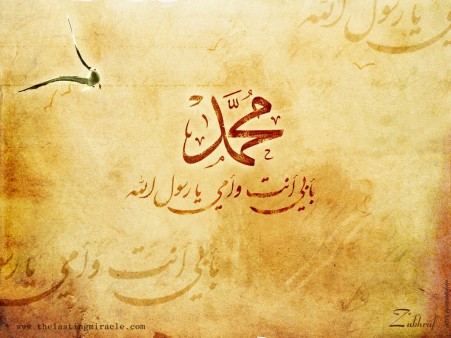 بأبي أنت وأمي يا رسول الله
محمد
بأبي أنت وأمي يا رسول الله
بأبي أنت وأمي يا رسول الله
www.thelastingmiracle.com
Zakhraf